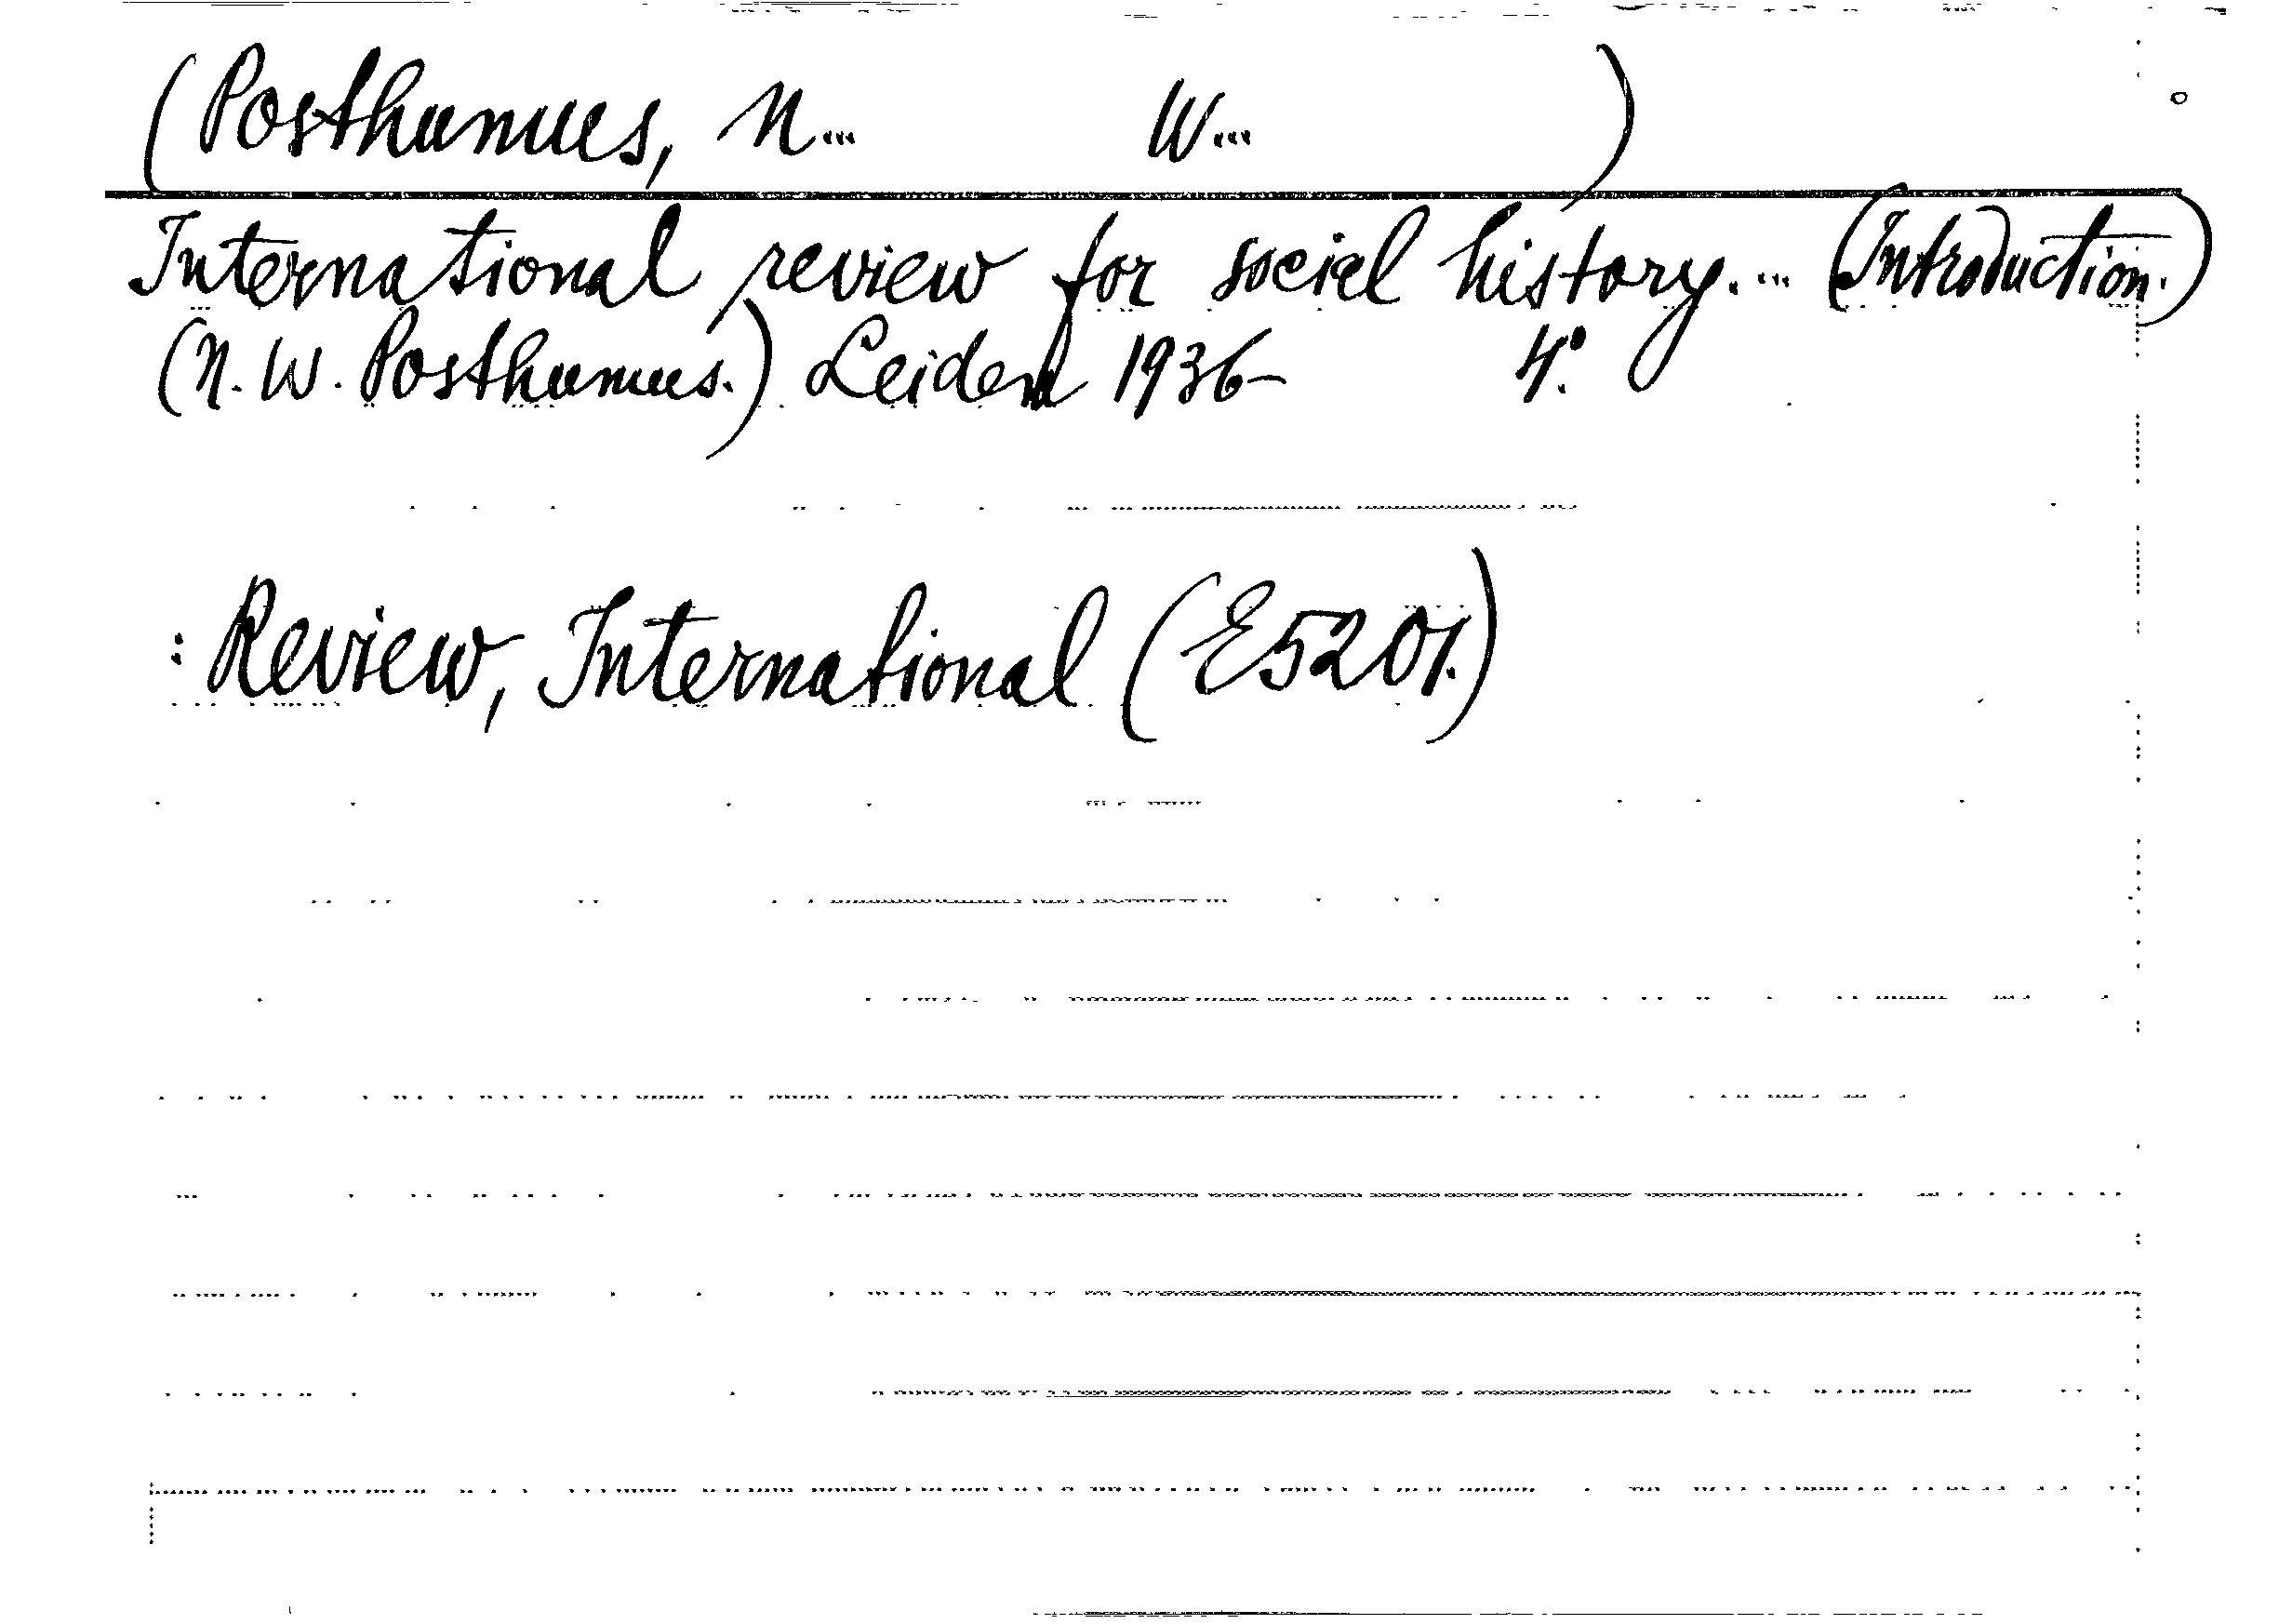 (Posthumus, N... W... )
International review for social history.... (Introduction.)
(N. W. Posthumus.) Leiden 1936- 4°.
: Review, International (E5201.)